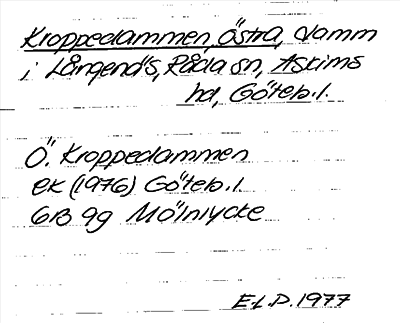 Kroppedammen, Östra, damm
i Långenäs, Råda sn, Askims
hd, Göteb.l.
Ö. Kroppedammen
ek (1976) Göteb.l.
6B 9g Mölnlycke
E.L.D. 1977